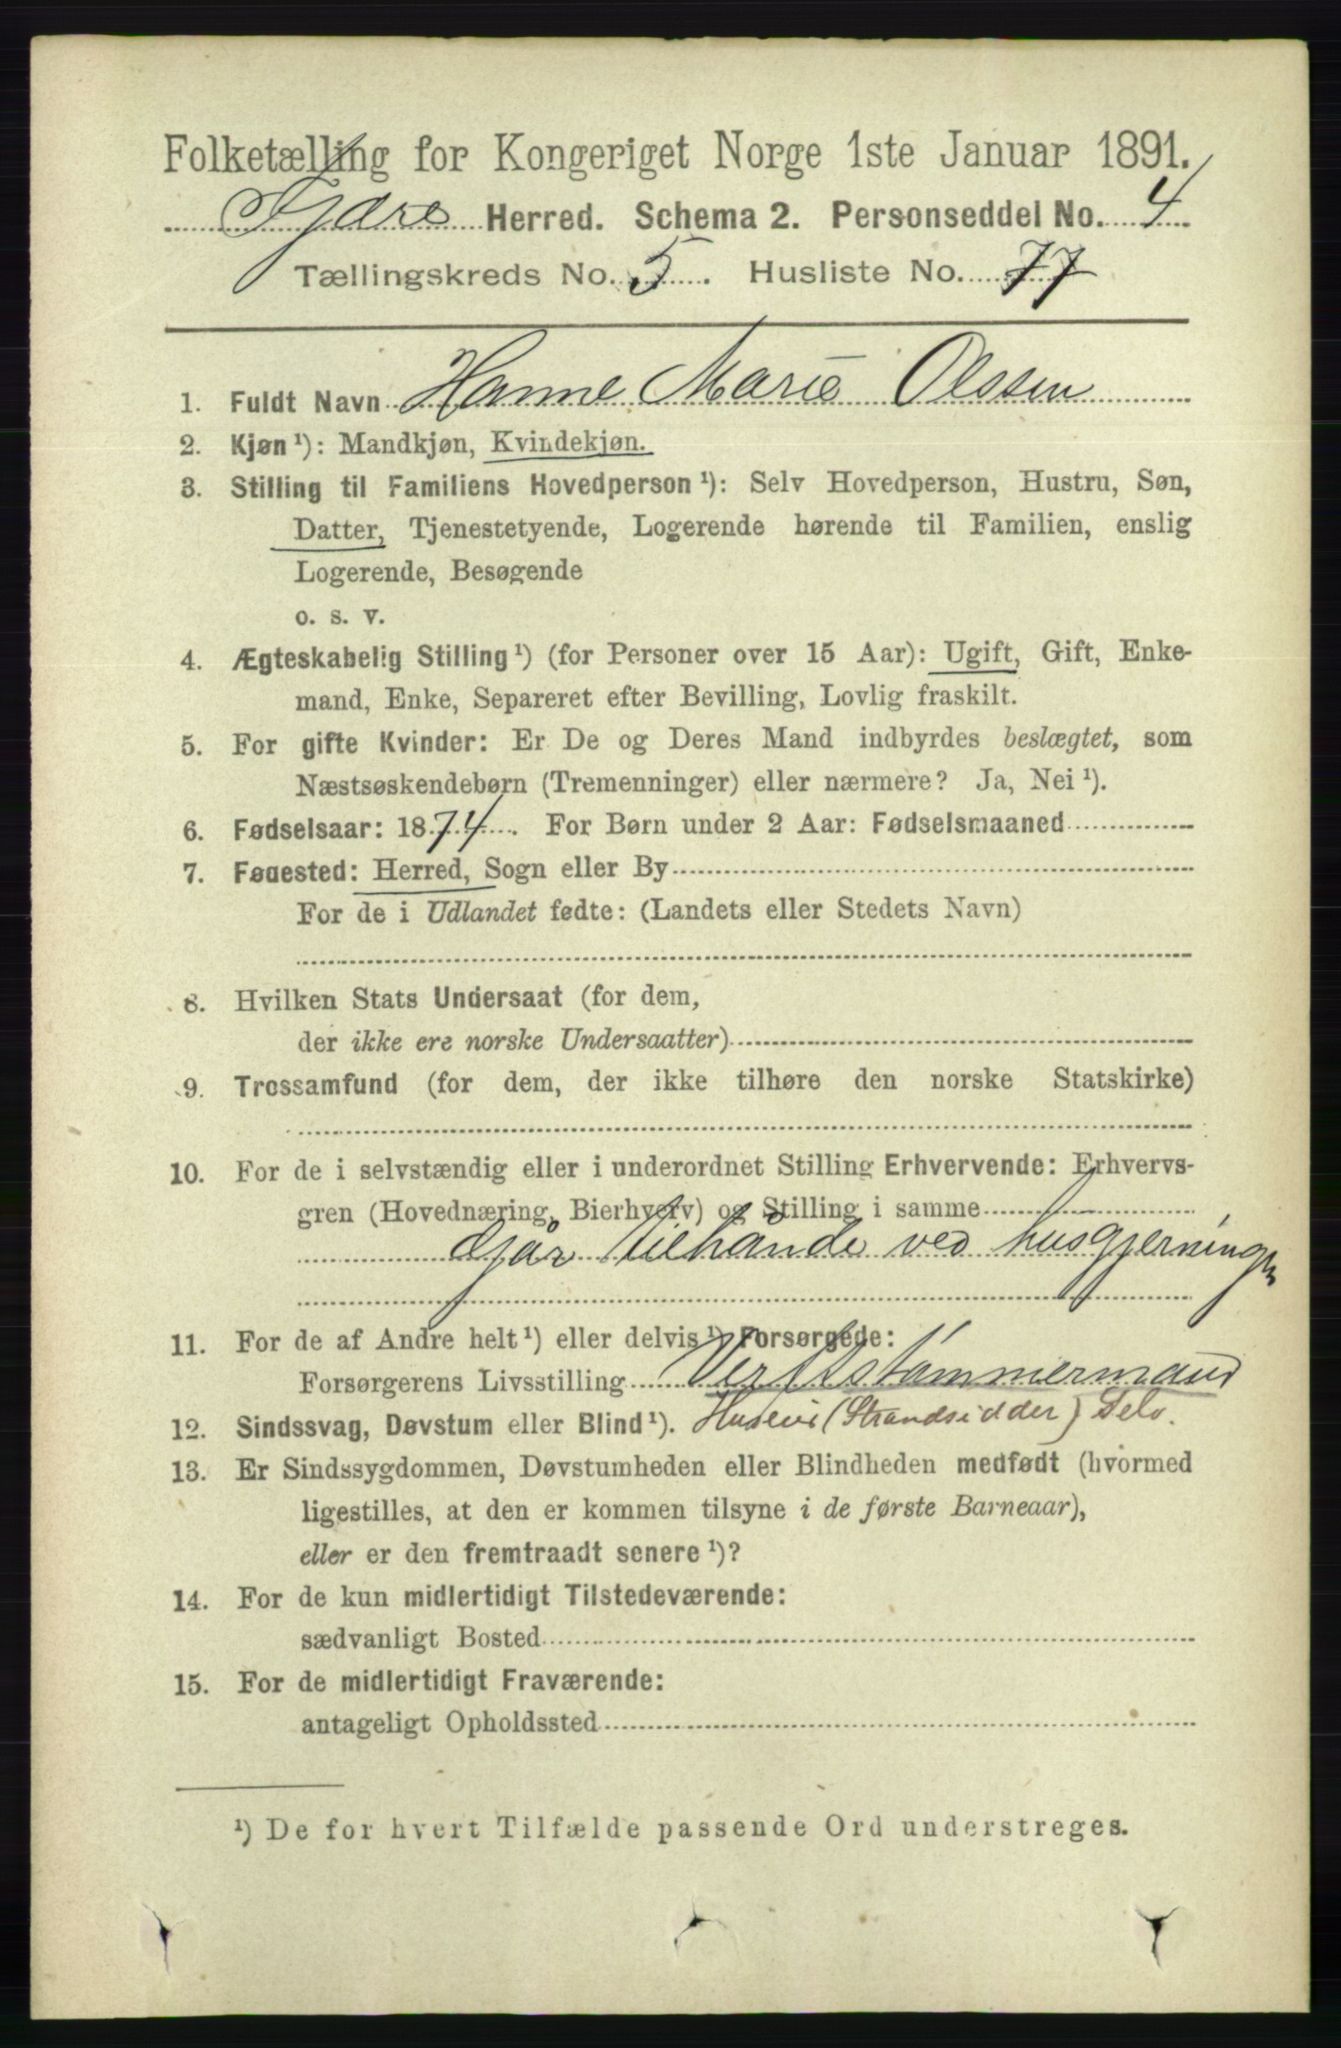 Folketælling for Kongeriget Norge 1ste Januar 1891.
Fjære Herred. Schema 2. Personseddel No. 4
Tællingskreds No. 5. Husliste No. 77
1. Fuldt Navn Hanne Marie Olssen
2. Kjøn ¹): Mandkjøn, Kvindekjøn.
3. Stilling til Familiens Hovedperson ¹): Selv Hovedperson, Hustru, Søn,
Datter, Tjenestetyende, Logerende hørende til Familien, enslig
Logerende, Besøgende
o. s. v.
4. Ægteskabelig Stilling ¹) (for Personer over 15 Aar): Ugift, Gift, Enke-
mand, Enke, Separeret efter Bevilling, Lovlig fraskilt.
5. For gifte Kvinder: Er De og Deres Mand indbyrdes beslægtet, som
Næstsøskendebørn (Tremenninger) eller nærmere? Ja, Nei ¹).
6. Fødselsaar: 1874. For Børn under 2 Aar: Fødselsmaaned
7. Fødested: Herred, Sogn eller By
For de i Udlandet fødte: (Landets eller Stedets Navn)
8. Hvilken Stats Undersaat (for dem,
der ikke ere norske Undersaatter)
9. Trossamfund (for dem, der ikke tilhøre den norske Statskirke)
10. For de i selvstændig eller i underordnet Stilling Erhvervende: Erhvervs-
gren (Hovednæring, Bierhverv) og Stilling i samme
Gjør tilhånde ved husgjerningen
11. For de af Andre helt ¹) eller delvis ¹) Forsørgede:
Forsørgerens Livsstilling Verftstømmermand
12. Sindssvag, Døvstum eller Blind ¹). Huseie (Strandsidder) Selv.
13. Er Sindssygdommen, Døvstumheden eller Blindheden medfødt (hvormed
ligestilles, at den er kommen tilsyne i de første Barneaar),
eller er den fremtraadt senere ¹)?
14. For de kun midlertidigt Tilstedeværende:
sædvanligt Bosted
15. For de midlertidigt Fraværende:
antageligt Opholdssted
¹) De for hvert Tilfælde passende Ord understreges.